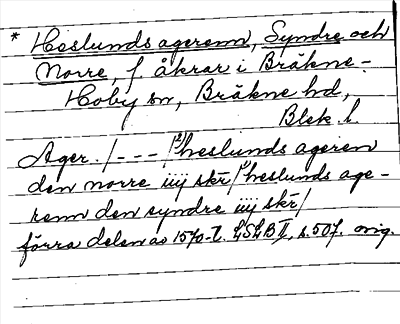 * Heslunds agerenn, Syndre och
Norre, f. åkrar i Bräkne-
Hoby sn, Bräkne hd,
Blek. l.
Ager. /--- /2) heslunds ageren
den norre iiij skr/ 1) heslunds age-
renn den syndre iiij skr/
förra delen av 1570-t. LSLB II, s. 507. orig.